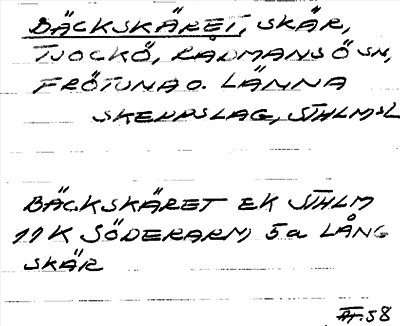 BÄCKSKÄRET, SKÄR,
TJOCKÖ, RADMANSÖ SN,
FRÖTUNA O. LÄNNA
SKEPPSLAG, STHLMSL
BÄCKSKÄRET EK STHLM
11K SÖDERARM, 5a LÅNG
SKÄR
58